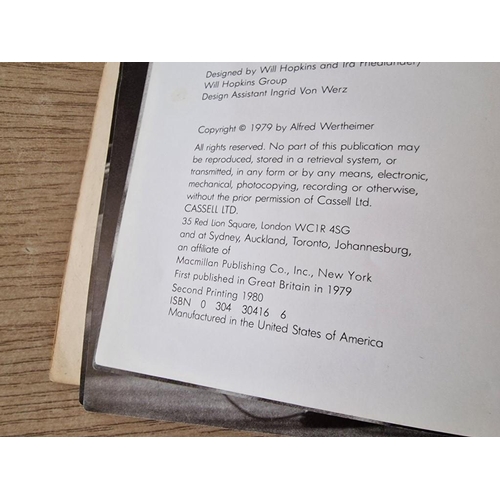 Designed by Will Hopkins and Ira Friedlander/
Will Hopkins Group
Design Assistant Ingrid Von Werz
Copyright © 1979 by Alfred Wertheimer
All rights reserved. No part of this publication may
be reproduced, stored in a retrieval system, or
transmitted, in any form or by any means, electronic,
mechanical, photocopying, recording or otherwise,
without the prior permission of Cassell Ltd.
CASSELL LTD.
35 Red Lion Square, London WC1R 4SG
and at Sydney, Auckland, Toronto, Johannesburg,
an affiliate of
Macmillan Publishing Co., Inc., New York
First published in Great Britain in 1979
Second Printing 1980
ISBN 0 304 30416 6
Manufactured in the United States of America